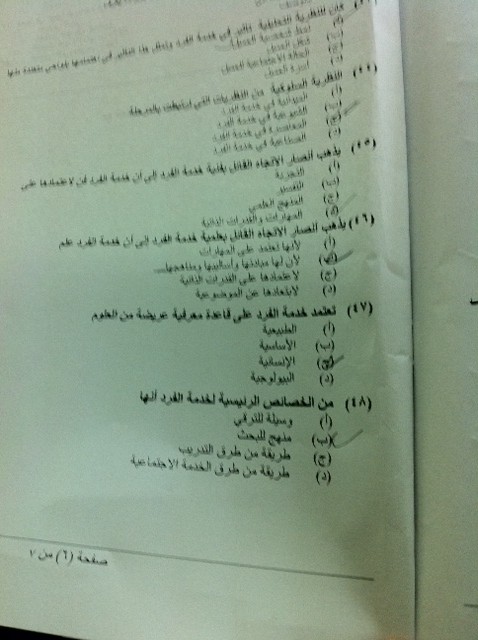 كان للنظرية التحليلية تأثير في خدمة الفرد
(٤٤) النظرية السلوكية من النظريات التي ارتبطت بالمرحلة
(أ) في خدمة الفرد
(ب) في خدمة الفرد
(ج) المعاصرة في خدمة الفرد
(د) الصناعية في خدمة الفرد
(٤٥) يذهب أنصار الاتجاه القائل بفنية خدمة الفرد إلى أن خدمة الفرد فن لاعتمادها على
(أ) التجربة
(ب) التفسير
(ج) المنهج العلمي
(د) المهارات والقدرات الذاتية
(٤٦) يذهب أنصار الاتجاه القائل بعلمية خدمة الفرد إلى أن خدمة الفرد علم
(أ) لأنها تعتمد على المهارات
(ب) لأن لها مبادئها وأساليبها ومناهجها
(ج) لاعتمادها على القدرات الذاتية
(د) لابتعادها عن الموضوعية
(٤٧) تعتمد خدمة الفرد على قاعدة معرفية عريضة من العلوم
(أ) الطبيعية
(ب) الأساسية
(ج) الإنسانية
(د) البيولوجية
(٤٨) من الخصائص الرئيسية لخدمة الفرد أنها
(أ) وسيلة للترقي
(ب) منهج للبحث
(ج) طريقة من طرق التدريب
(د) طريقة من طرق الخدمة الاجتماعية
صفحة (٦) من ٧